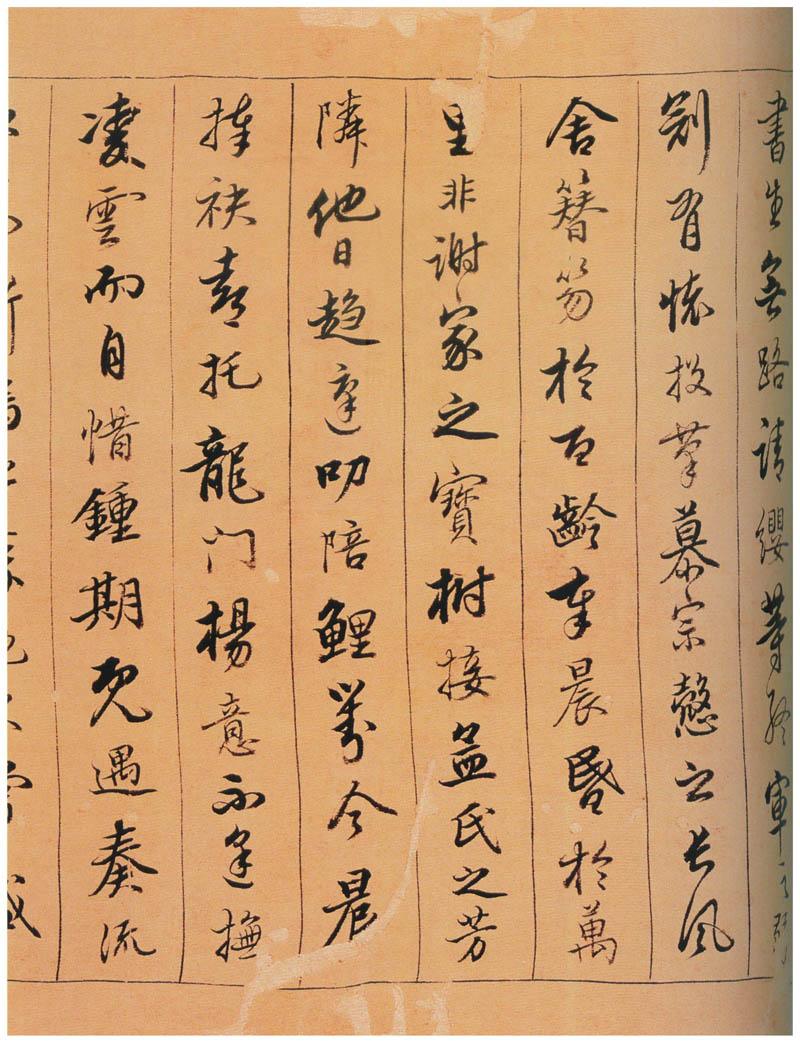 書生無路請纓等終軍之弱
冠有懷投筆慕宗愨之長風
舍簪笏於百齡奉晨昏於萬
里非謝家之寶樹接孟氏之芳
隣他日趨庭叨陪鯉對今晨
捧袂喜托龍門楊意不逢撫
凌雲而自惜鍾期既遇奏流
勝地不常盛